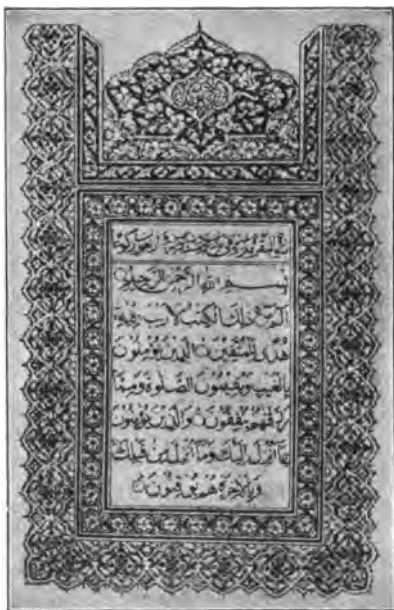 بِسْمِ اللهِ الرَّحْمٰنِ الرَّحِيمِ
الم ذٰلِكَ الْكِتٰبُ لَا رَيْبَ فِيهِ
هُدًى لِلْمُتَّقِينَ الَّذِينَ يُؤْمِنُونَ
بِالْغَيْبِ وَيُقِيمُونَ الصَّلٰوةَ وَمِمَّا
رَزَقْنٰهُمْ يُنْفِقُونَ وَالَّذِينَ يُؤْمِنُونَ
بِمَا أُنْزِلَ إِلَيْكَ وَمَا أُنْزِلَ مِنْ قَبْلِكَ
وَبِالْآخِرَةِ هُمْ يُوقِنُونَ